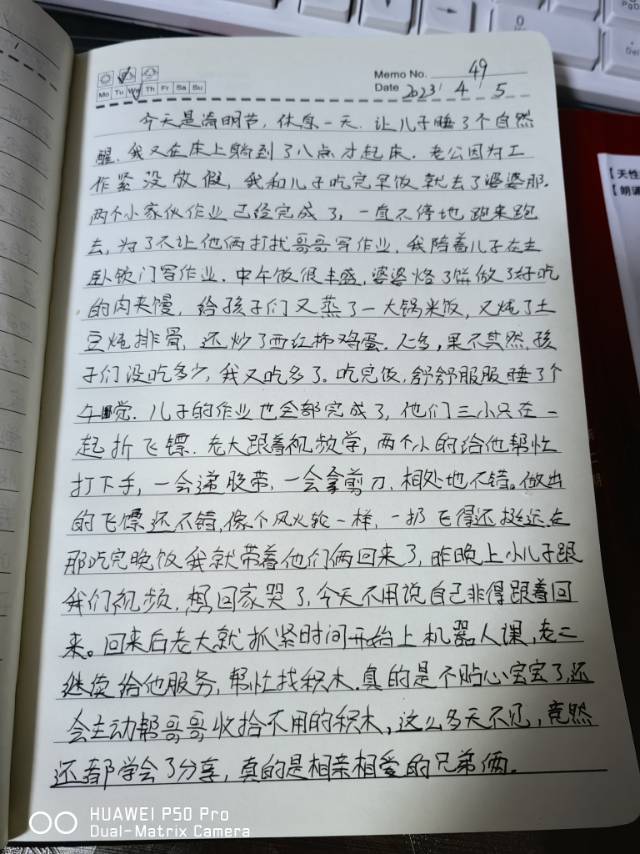 Memo No. 49
Mo Tu We Th Fr Sa Su
Date 2023 / 4 / 5
今天是清明节，休息一天，让儿子睡了个自然
醒，我又在床上躺到了八点才起床。老公因为工
作紧没放假，我和儿子吃完早饭就去了婆婆那。
两个小家伙作业已经完成了，一直不停地跑来跑
去，为了不让他俩打扰哥哥写作业，我陪着儿子在主
卧锁门写作业。中午饭很丰盛，婆婆烙了饼做了好吃
的肉夹馍，给孩子们又蒸了一大锅米饭，又炖了土
豆炖排骨，还炒了西红柿鸡蛋。人多，果不其然，孩
子们没吃多少，我又吃多了。吃完饭，舒舒服服睡了个
午觉。儿子的作业也全部完成了，他们三小只在一
起折飞镖，老大跟着视频学，两个小的给他帮忙
打下手，一会递胶带，一会拿剪刀，相处地不错。做出
的飞镖还不错，像个风火轮一样，一扔飞得还挺远。在
那吃完晚饭我就带着他们俩回来了，昨晚上小儿子跟
我们视频，想回家哭了，今天不用说自己非得跟着回
来。回来后老大就抓紧时间开始上机器人课，老二
继续给他服务，帮忙找积木。真的是不贴心宝宝了，还
会主动帮哥哥收拾不用的积木，这么多天不见，竟然
还都学会了分享，真的是相亲相爱的兄弟俩。
HUAWEI P50 Pro
Dual-Matrix Camera
PgDn
【天性
【朗诵